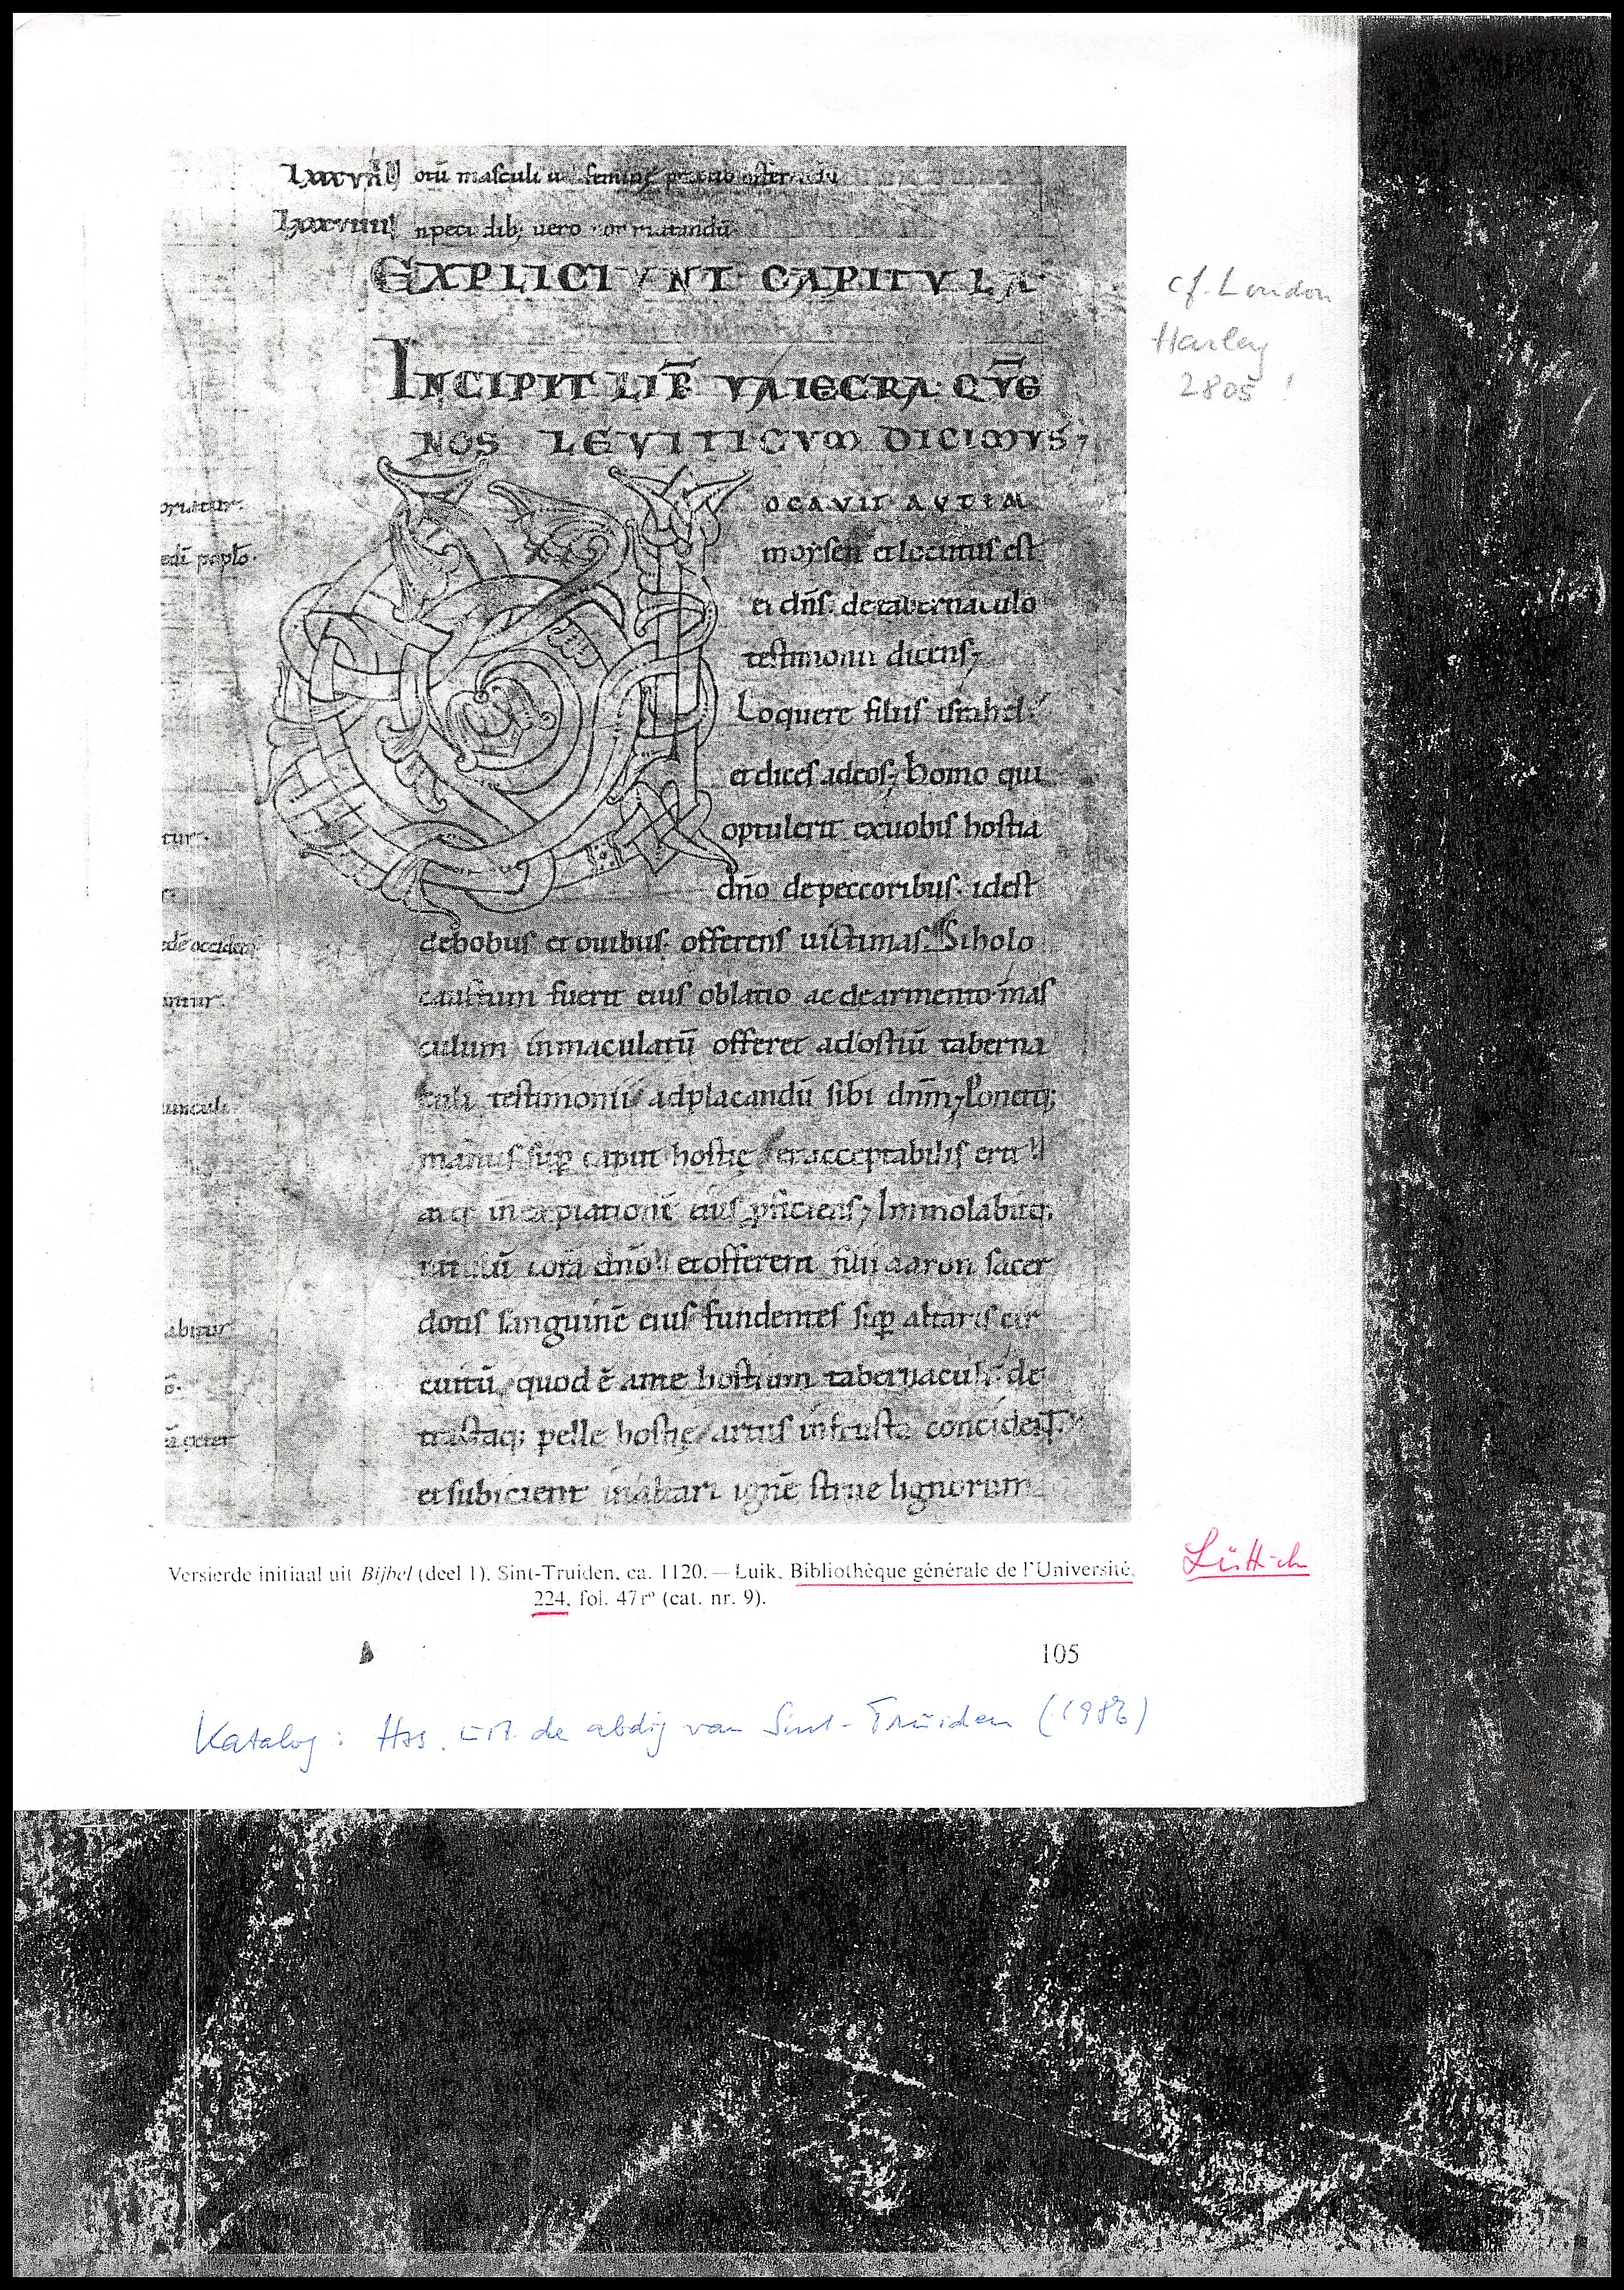 otū masculi
vero
EXPLICIVNT CAPITVLA
INCIPIT LIB̄ VAIECRA· QVE
NOS LEVITICVM DICIMVS;
OCAVIT AVTEM
moysen et locutus est
ei dn̄s· de tabernaculo
testimonii dicens;
Loquere filiis israhel·
et dices ad eos; Homo qui
optulerit ex uobis hostiā
dn̄o de peccoribus· id est
de bobus et ouibus· offerens uictimas. Si holo
caustum fuerit eius oblatio ac de armento· mas
culum inmaculatū offeret ad ostiū taberna
culi testimonii ad placandū sibi dn̄m; Ponetq;
manus sup caput hostię et acceptabilis erit
atq; in expiationē eius pficiens; Immolabitq;
uitulū corā dn̄o et offerent filii aaron sacer
dotis sanguinē eius fundentes sup altaris cir
cuitū, quod ē ante hostium tabernaculi· de
tractaq; pelle hostię artus in frusta concident
et subicient in altari ignē strue lignorum
oriatur·
edē poplō·
tur·
edē occidem
antur·
unculi
abitur
cf. London
Harley
2805 !
Versierde initiaal uit Bijbel (deel 1). Sint-Truiden, ca. 1120. — Luik, Bibliothèque générale de l'Université,
224, fol. 47rº (cat. nr. 9).
Lüttich
105
Katalog: Hss. uit de abdij van Sint-Truiden (1986)